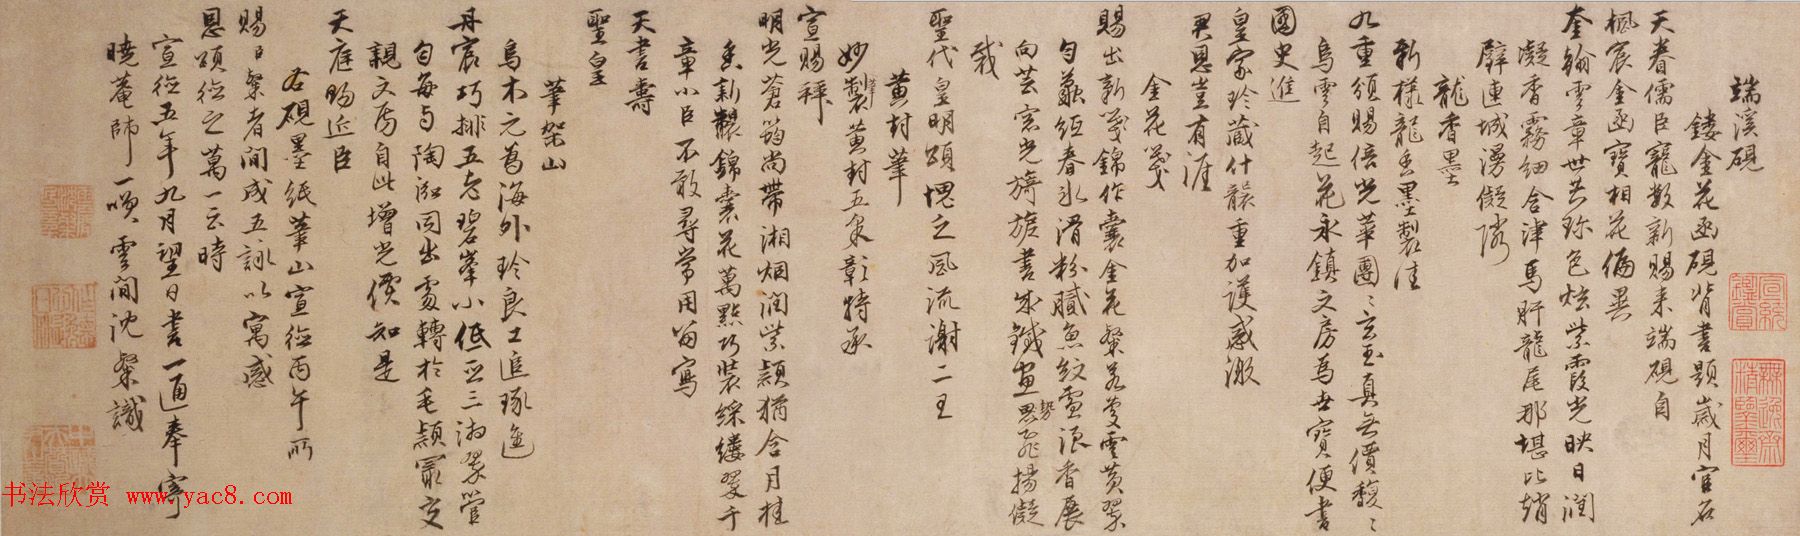 端溪硯
鏤金花函硯背書題歲月官名
天眷儒臣寵數新賜来端硯自
楓宸金函寶相花偏異
奎翰雲章世共珍色炫紫霞光映日潤
凝香霧細含津馬肝龍尾那堪比趙
璧連城漫儗隣
龍香墨
新様龍香墨製佳
九重頒賜倍光華團〻玄玉真無價馥〻
烏雲自起花永鎮文房為世寶便書
國史進
皇家珍藏什襲重加護感激
君恩豈有涯
金花箋
賜出新箋錦作囊金花粲爛雲黃翠
勻蠶紙春冰滑粉膩魚紋雪浪香展
向芸窓光旖旎書成鐵畫勢飛揚儗
裁
聖代皇明頌愧乏風流謝二王
黃封筆
妙製黃封五采彰特承
宣賜拜
明光蒼筠尚帶湘烟潤紫穎猶含月桂
香新襯錦囊花萬點巧裝綵縷翠千
章小臣不敢尋常用留寫
天書壽
聖皇
筆架山
烏木元為海外珍良工追琢進
丹宸巧排五老碧峯小低亞三湘翠管
勻每与陶泓同出處轉於毛穎最交
親文房自此增光價知是
天庭賜近臣
右硯墨紙筆山宣德丙午所
賜日粲者間成五詠以寓感
恩頌德之萬一云時
宣德五年九月望日書一通奉寄
曉菴師一噱雲間沈粲識
书法欣赏 www.yac8.com